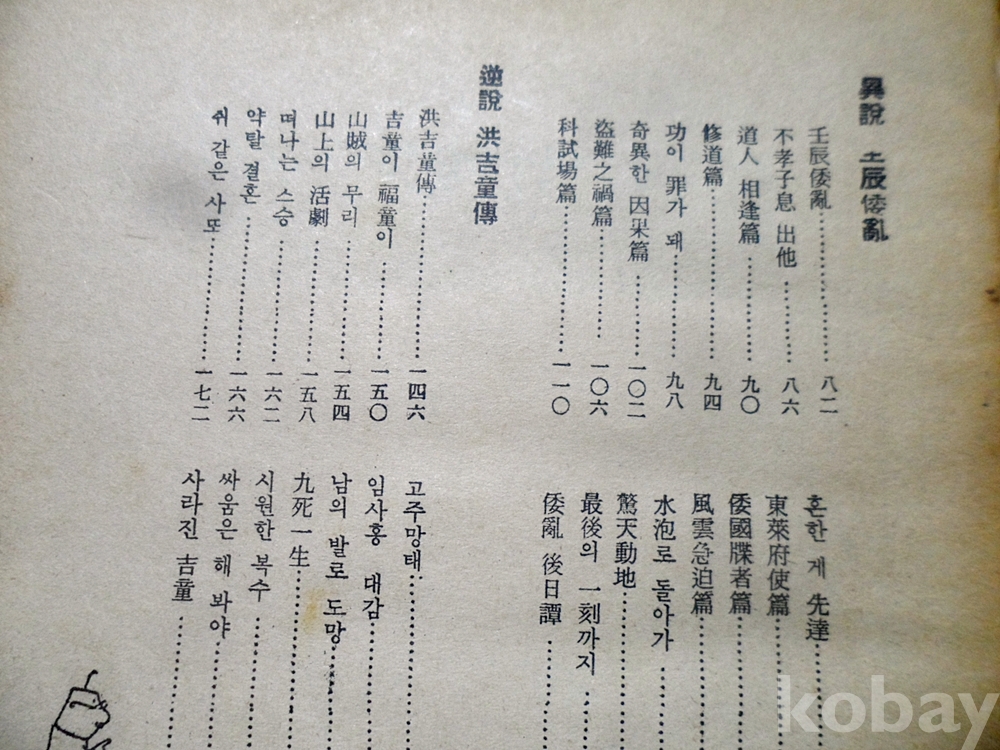 異說 壬辰倭亂
壬辰倭亂……………八二
不孝子息 出他……八六
道人 相逢篇………九〇
修道篇………………九四
功이 罪가 돼………九八
奇異한 因果篇……一〇二
盜難之禍篇…………一〇六
科試場篇……………一一〇
흔한 게 先達………
東萊府使篇…………
倭國牒者篇…………
風雲急迫篇…………
水泡로 돌아가……
驚天動地……………
最後의 一刻까지…
倭亂 後日譚………
逆說 洪吉童傳
洪吉童傳……………一四六
吉童이 福童이……一五〇
山賊의 무리………一五四
山上의 活劇………一五八
떠나는 스승………一六二
약탈 결혼…………一六六
쥐 같은 사또………一七二
고주망태……………
임사홍 대감………
남의 발로 도망……
九死一生……………
시원한 복수………
싸움은 해 봐야……
사라진 吉童………
kobay